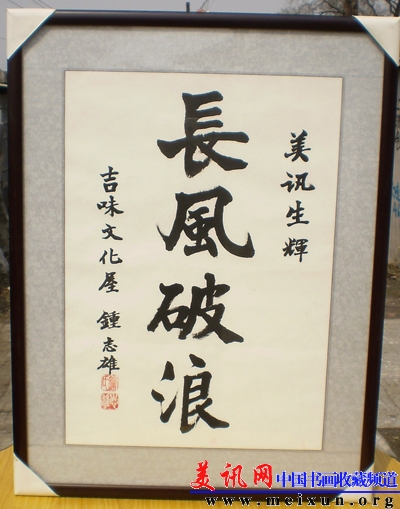 美讯生輝
長風破浪
吉味文化屋 鍾志雄
美讯网 中国书画收藏频道
www.meixun.org